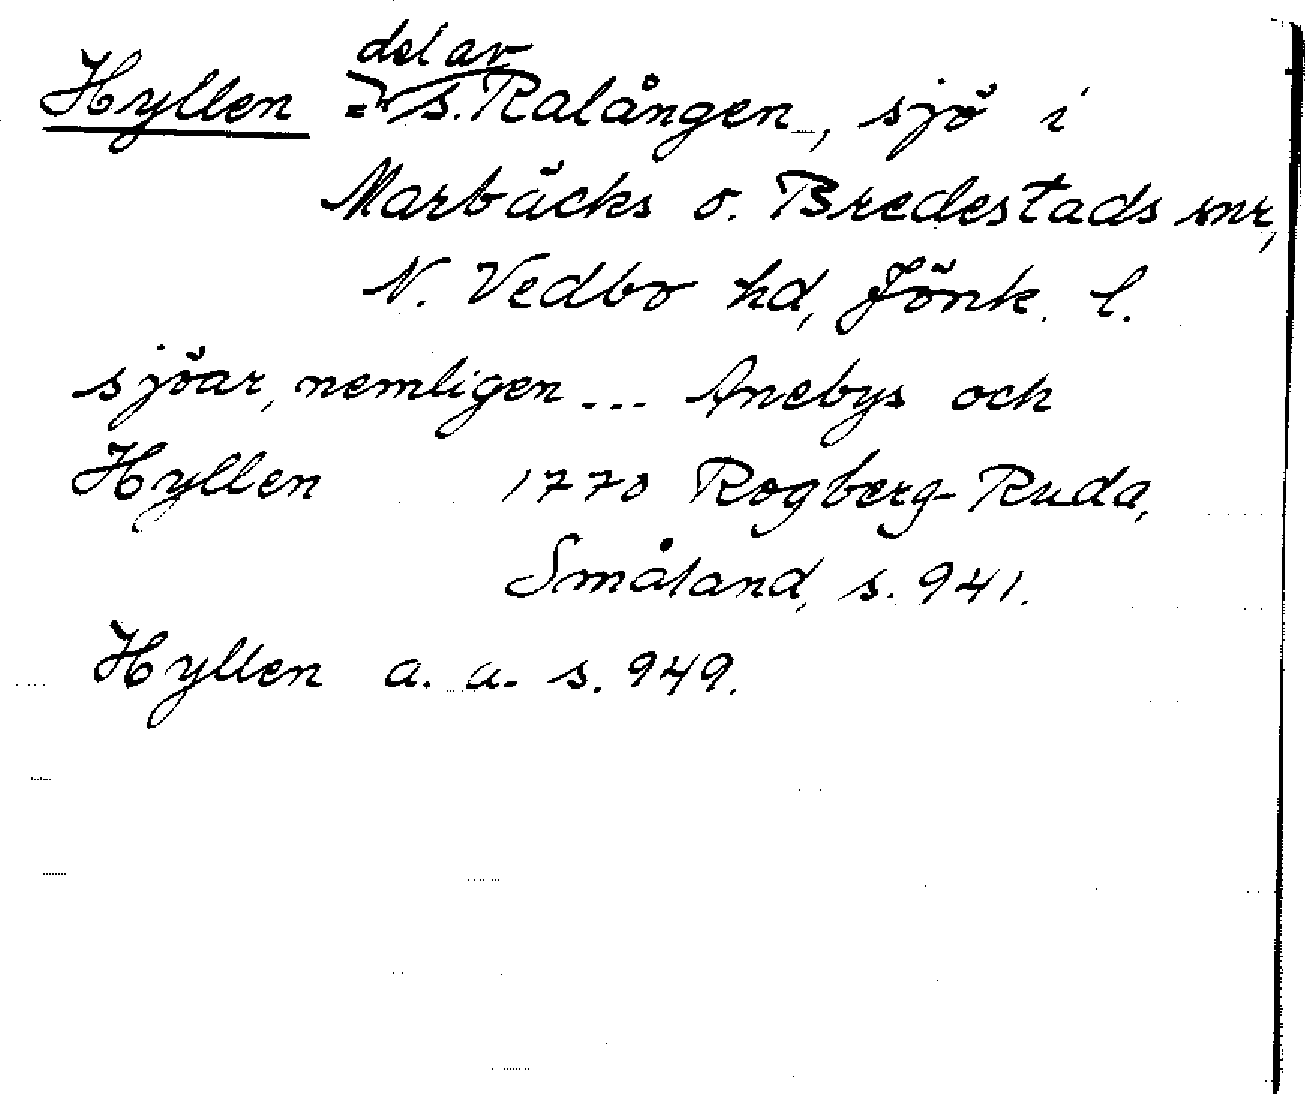 Hyllen = del av s. Ralången, sjö i
Marbäcks o. Bredestads snr,
N. Vedbo hd, Jönk. l.
sjöar, nemligen ... Anebys och
Hyllen 1770 Rogberg-Ruda,
Småland, s. 941.
Hyllen a. a. s. 949.